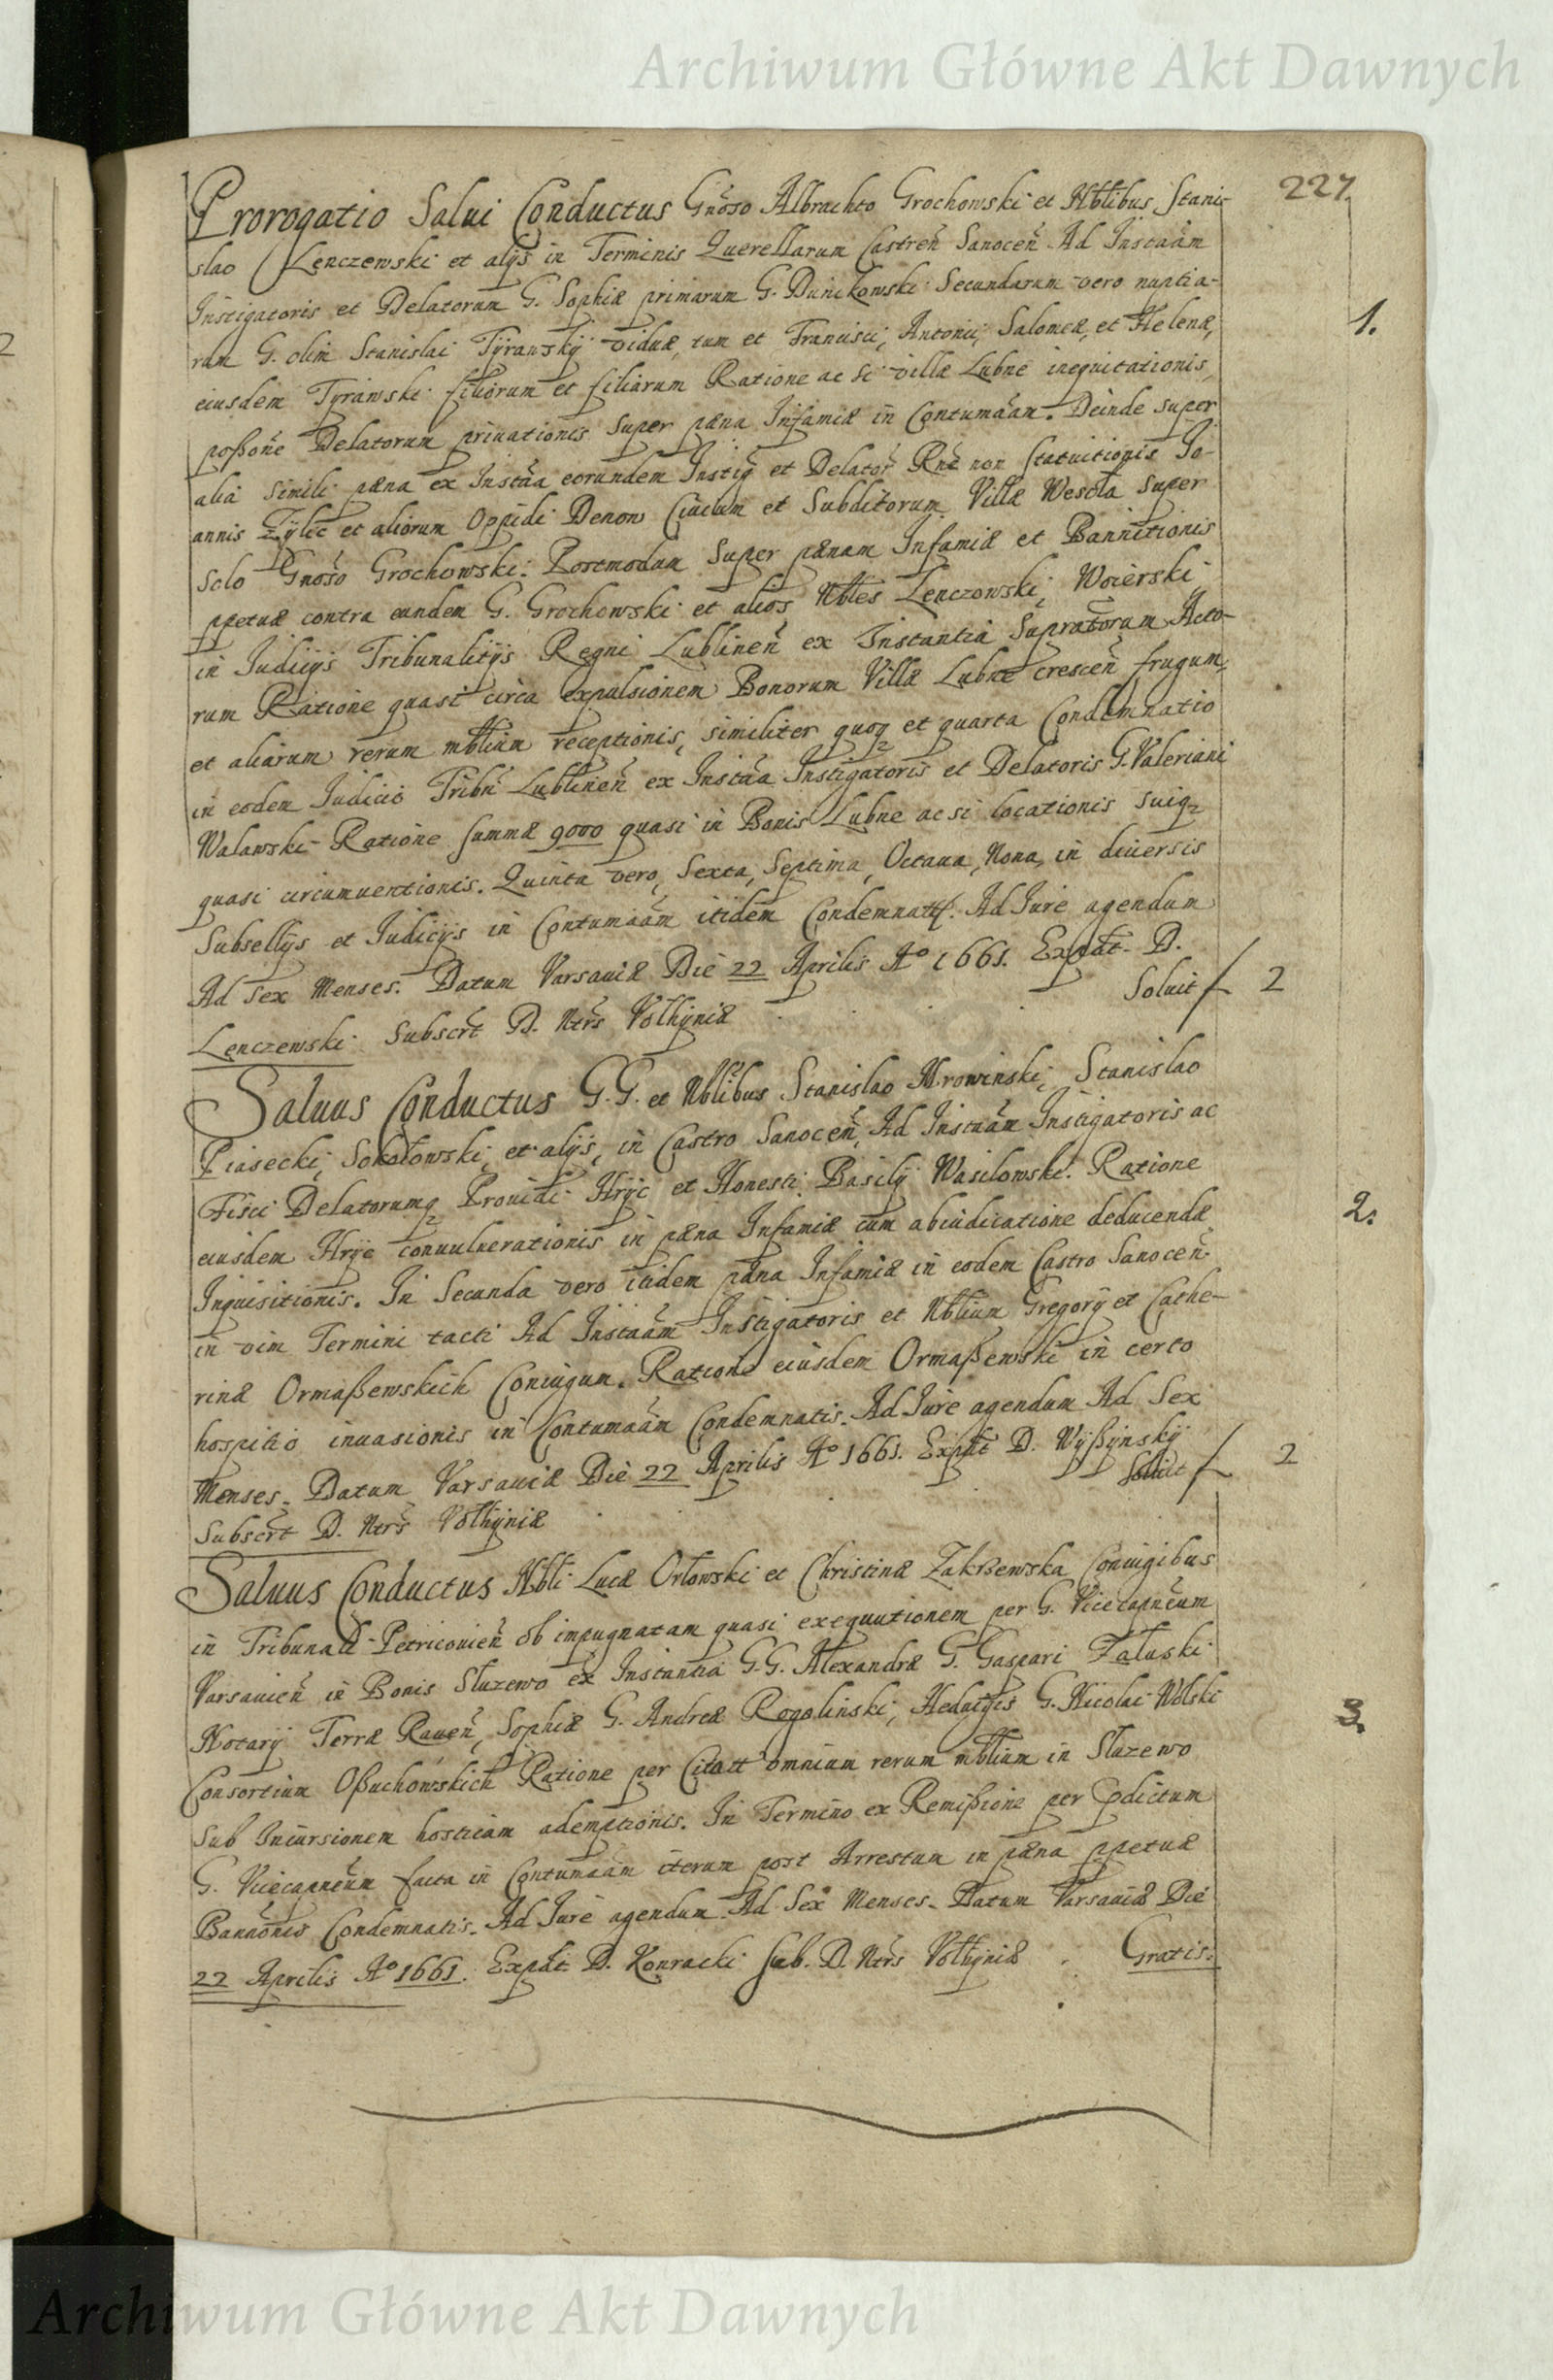 Archiwum Główne Akt Dawnych
227.
Prorogatio Salui Conductus Gnoso Albrachto Grochowski et Nblibus Stani-
slao Lenczewski et alijs in Terminis Querellarum Castren Sanocen Ad Instaam
Instigatoris et Delatorum G. Sophiæ primarum G. Dunikowski Secundarum vero nuptia-
rum G. olim Stanislai Tyrawskij viduæ, tum et Francisci, Antonii, Salomeæ, et Helenæ,
eiusdem Tyrawski filiorum et filiarum Ratione ac si villæ Lubne inequitationis,
poßone Delatorum priuationis Super pæna Infamiæ in Contumaam. Deinde super
alia simili pæna ex Instaa eorundem Instig et Delator Rne non statuitionis Jo-
annis Zylic et aliorum Oppidi Denow Ciuium et Subditorum Villæ Wesola Super
solo Gnoso Grochowski. Postmodum Super pænam Infamiæ et Bannitionis
ppetuæ contra eundem G. Grochowski et alios Nbles Lenczowski, Woierski
in Iudicijs Tribunalitijs Regni Lublinen ex Instantia Supratorum Acto-
rum Ratione quasi circa expulsionem Bonorum Villæ Lubne crescen frugum,
et aliarum rerum mblium receptionis, similiter quoq et quarta Condemnatio
in eodem Iudicio Tribn Lublinen ex Instaa Instigatoris et Delatoris G. Valeriani
Walawski Ratione summæ 9000 quasi in Bonis Lubne ac si locationis suiq
quasi circumuentionis. Quinta vero, Sexta, Septima, Octaua, Nona, in diuersis
Subsellijs et Iudicijs in Contumaam itidem Condemnatt. Ad Iure agendum
Ad Sex Menses. Datum Varsauiæ Die 22 Aprilis Ao 1661. Expdt D.
Lenczewski Subscrt D. Ntrs Volhyniæ Soluit f 2
1.
Saluus Conductus G. G. et Nblibus Stanislao Hrowinski, Stanislao
Piasecki, Sokołowski, et alijs, in Castro Sanocen, Ad Instaam Instigatoris ac
Fisci Delatorumq Prouidi Hryc et Honesti Basilij Wasilowski. Ratione
eiusdem Hryc conuulnerationis in pæna Infamiæ cum abiudicatione deducendæ
Inquisitionis. In Secunda vero itidem pæna Infamiæ in eodem Castro Sanocen
in vim Termini tacti Ad Instaam Instigatoris et Nblium Gregorij et Cathe-
rinæ Ormaßewskich Coniugum. Ratione eiusdem Ormaßewski in certo
hospitio inuasionis in Contumaam Condemnatis. Ad Iure agendum Ad Sex
Menses. Datum Varsauiæ Die 22 Aprilis Ao 1661. Expdt D. Wyßynskij
Subscrt D. Ntrs Volhyniæ Soluit f 2
2.
Saluus Conductus Nbli Lucæ Orłowski et Christinæ Zakrzewska Coniugibus
in Tribunali Petricouien ob impugnatam quasi exequutionem per G. Vicecapneum
Varsauien in Bonis Sluzewo ex Instantia G. G. Alexandræ G. Gaspari Załuski
Notarij Terræ Rauen, Sophiæ G. Andreæ Rogolinski, Heduigis G. Nicolai Wolski
Consortium Oßuchowskich Ratione per Citatt omnium rerum mblium in Sluzewo
sub Incursionem hosticam ademptionis. In Termino ex Remißione per Edictum
G. Vicecapneum facta in Contumaam iterum post Arrestum in pæna ppetuæ
Bannonis Condemnatis. Ad Iure agendum Ad Sex Menses. Datum Varsauiæ Die
22 Aprilis Ao 1661. Expdt D. Konracki Sub. D. Ntrs Volhyniæ Gratis.
3.
Archiwum Główne Akt Dawnych